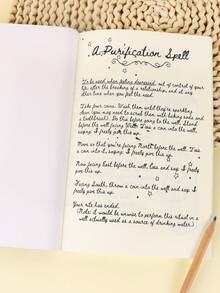 A Purification Spell
To be used when feeling depressed, out of control of your
life, after the breaking of a relationship, and at any
other time when you feel the need.
Take four coins. Wash them until they're sparkling
clean (you may need to scrub them with baking soda and
a toothbrush). Do this before going to the well. Stand
before the well facing West. Toss a coin into the well,
saying: I freely give this up.
Move so that you're facing North before the well. Toss a
coin into it, saying: I freely give this up.
Now facing East before the well, toss and say: I
freely give this up.
Facing South, throw a coin into the well and say: I
freely give this up.
Your rite has ended.
(Note: it would be unwise to perform this ritual in a
well actually used as a source of drinking water.)